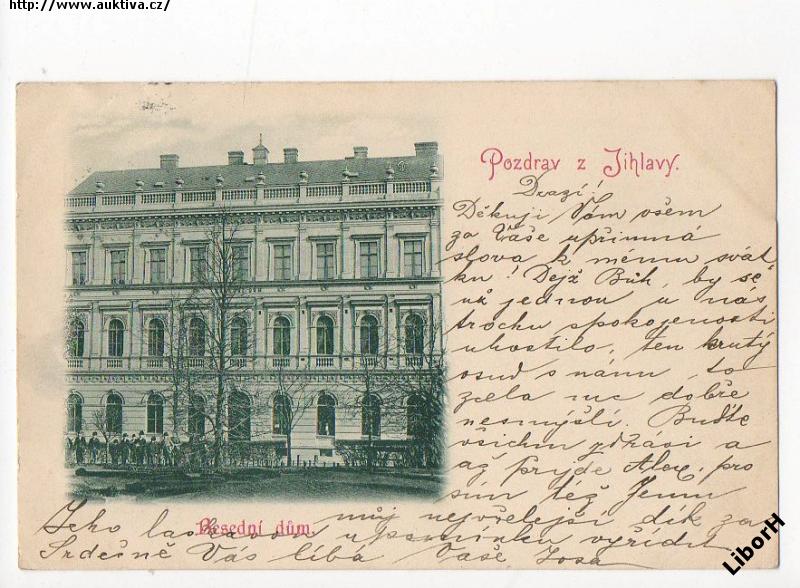 http://www.auktiva.cz/
Pozdrav z Jihlavy.
Drazí!
Děkuji Vám všem
za Vaše upřímná
slova k mému svát-
ku! Dejž Bůh, by se
už jednou u nás
trochu spokojenosti
uhostilo, ten krutý
osud s námi to
zcela nic dobře
nesmýšlí. Buďte
všichni zdrávi a
až přijde Alex, pro-
sím též Jemu
můj nejvřelejší dík za
Jeho laskavou upomínku vyřídit
Srdečně Vás líbá Vaše
Besední dům.
LiborH